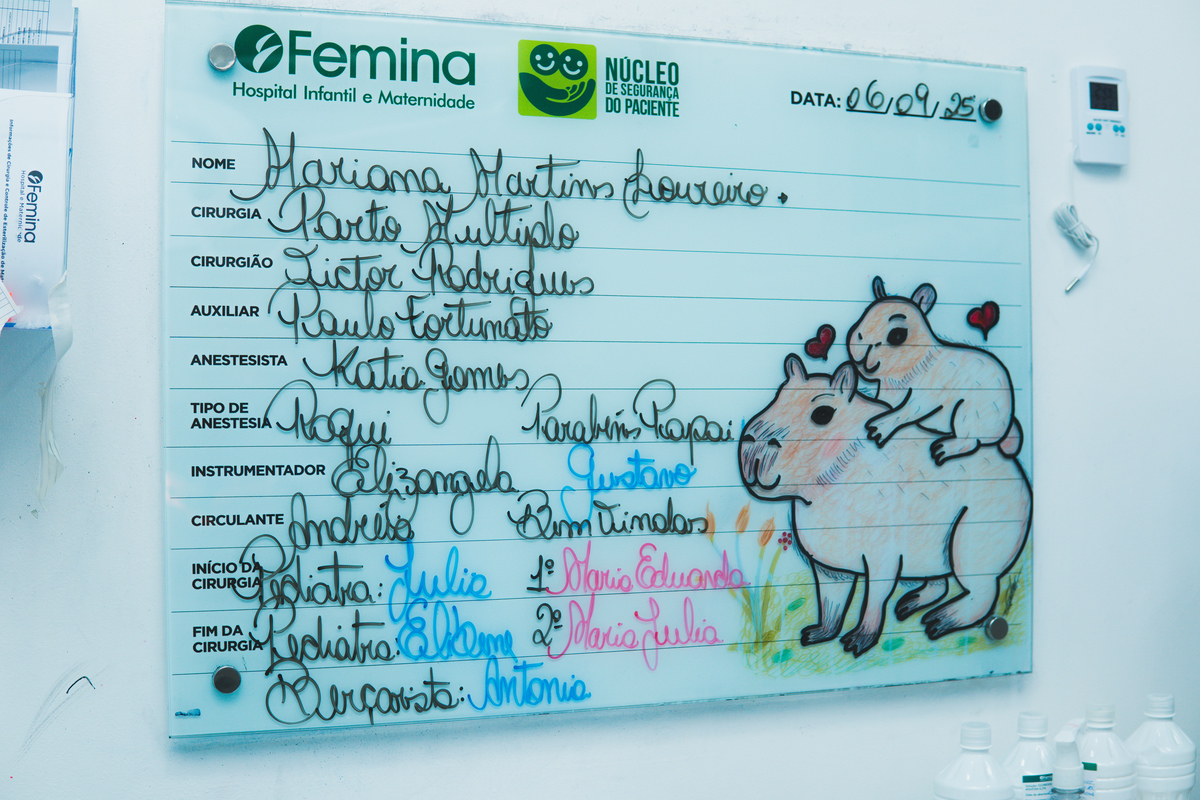 Femina
Hospital Infantil e Maternidade
NÚCLEO
DE SEGURANÇA
DO PACIENTE
DATA: 06/09/25
NOME Mariana Martins Loureiro.
CIRURGIA Parto Multiplo
CIRURGIÃO Victor Rodrigues
AUXILIAR Paulo Fortunato
ANESTESISTA Katia Gomes
TIPO DE
ANESTESIA Raqui Parabéns Papai
INSTRUMENTADOR Elizangela Gustavo
CIRCULANTE Andréia Bem Vindas
INÍCIO DA
CIRURGIA Pediatra: Julia 1º Maria Eduarda
FIM DA
CIRURGIA Pediatra: Elidene 2º Maria Julia
Berçarista: Antonia
Femina